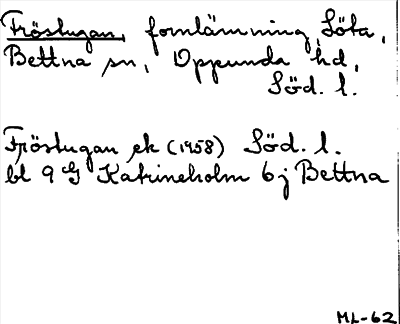 Fröstugan, fornlämning, Löta,
Bettna sn, Oppunda hd,
Söd. l.
Fröstugan ek (1958) Söd. l.
bl 9 G Katrineholm 6 j Bettna
ML-62